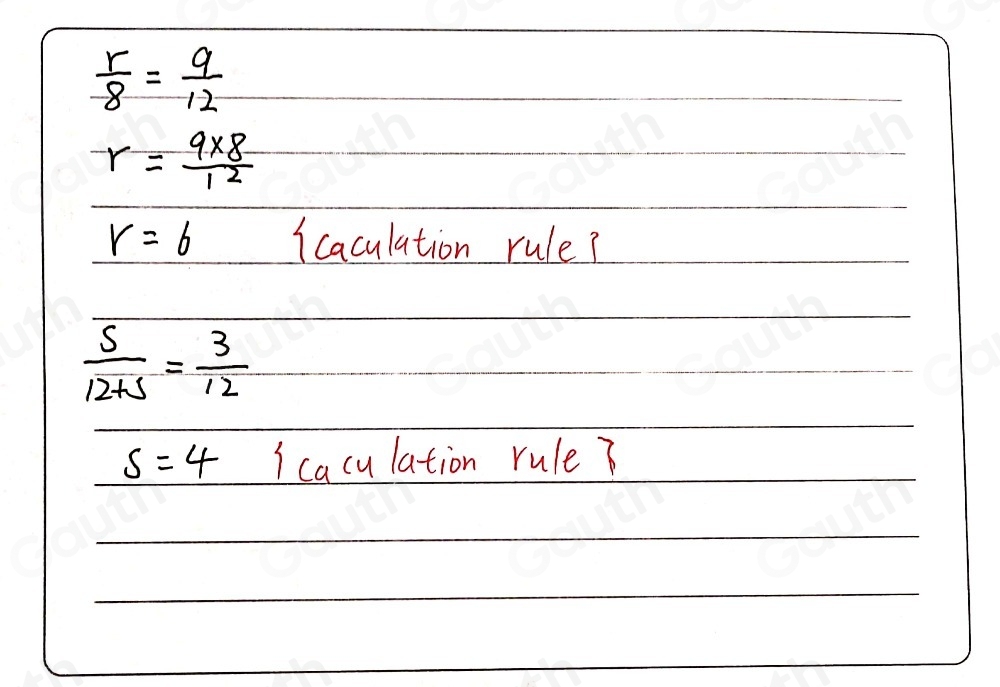 r/8 = 9/12
r = 9×8/12
r = 6 {caculation rule}
s/12+s = 3/12
s = 4 {caculation rule}